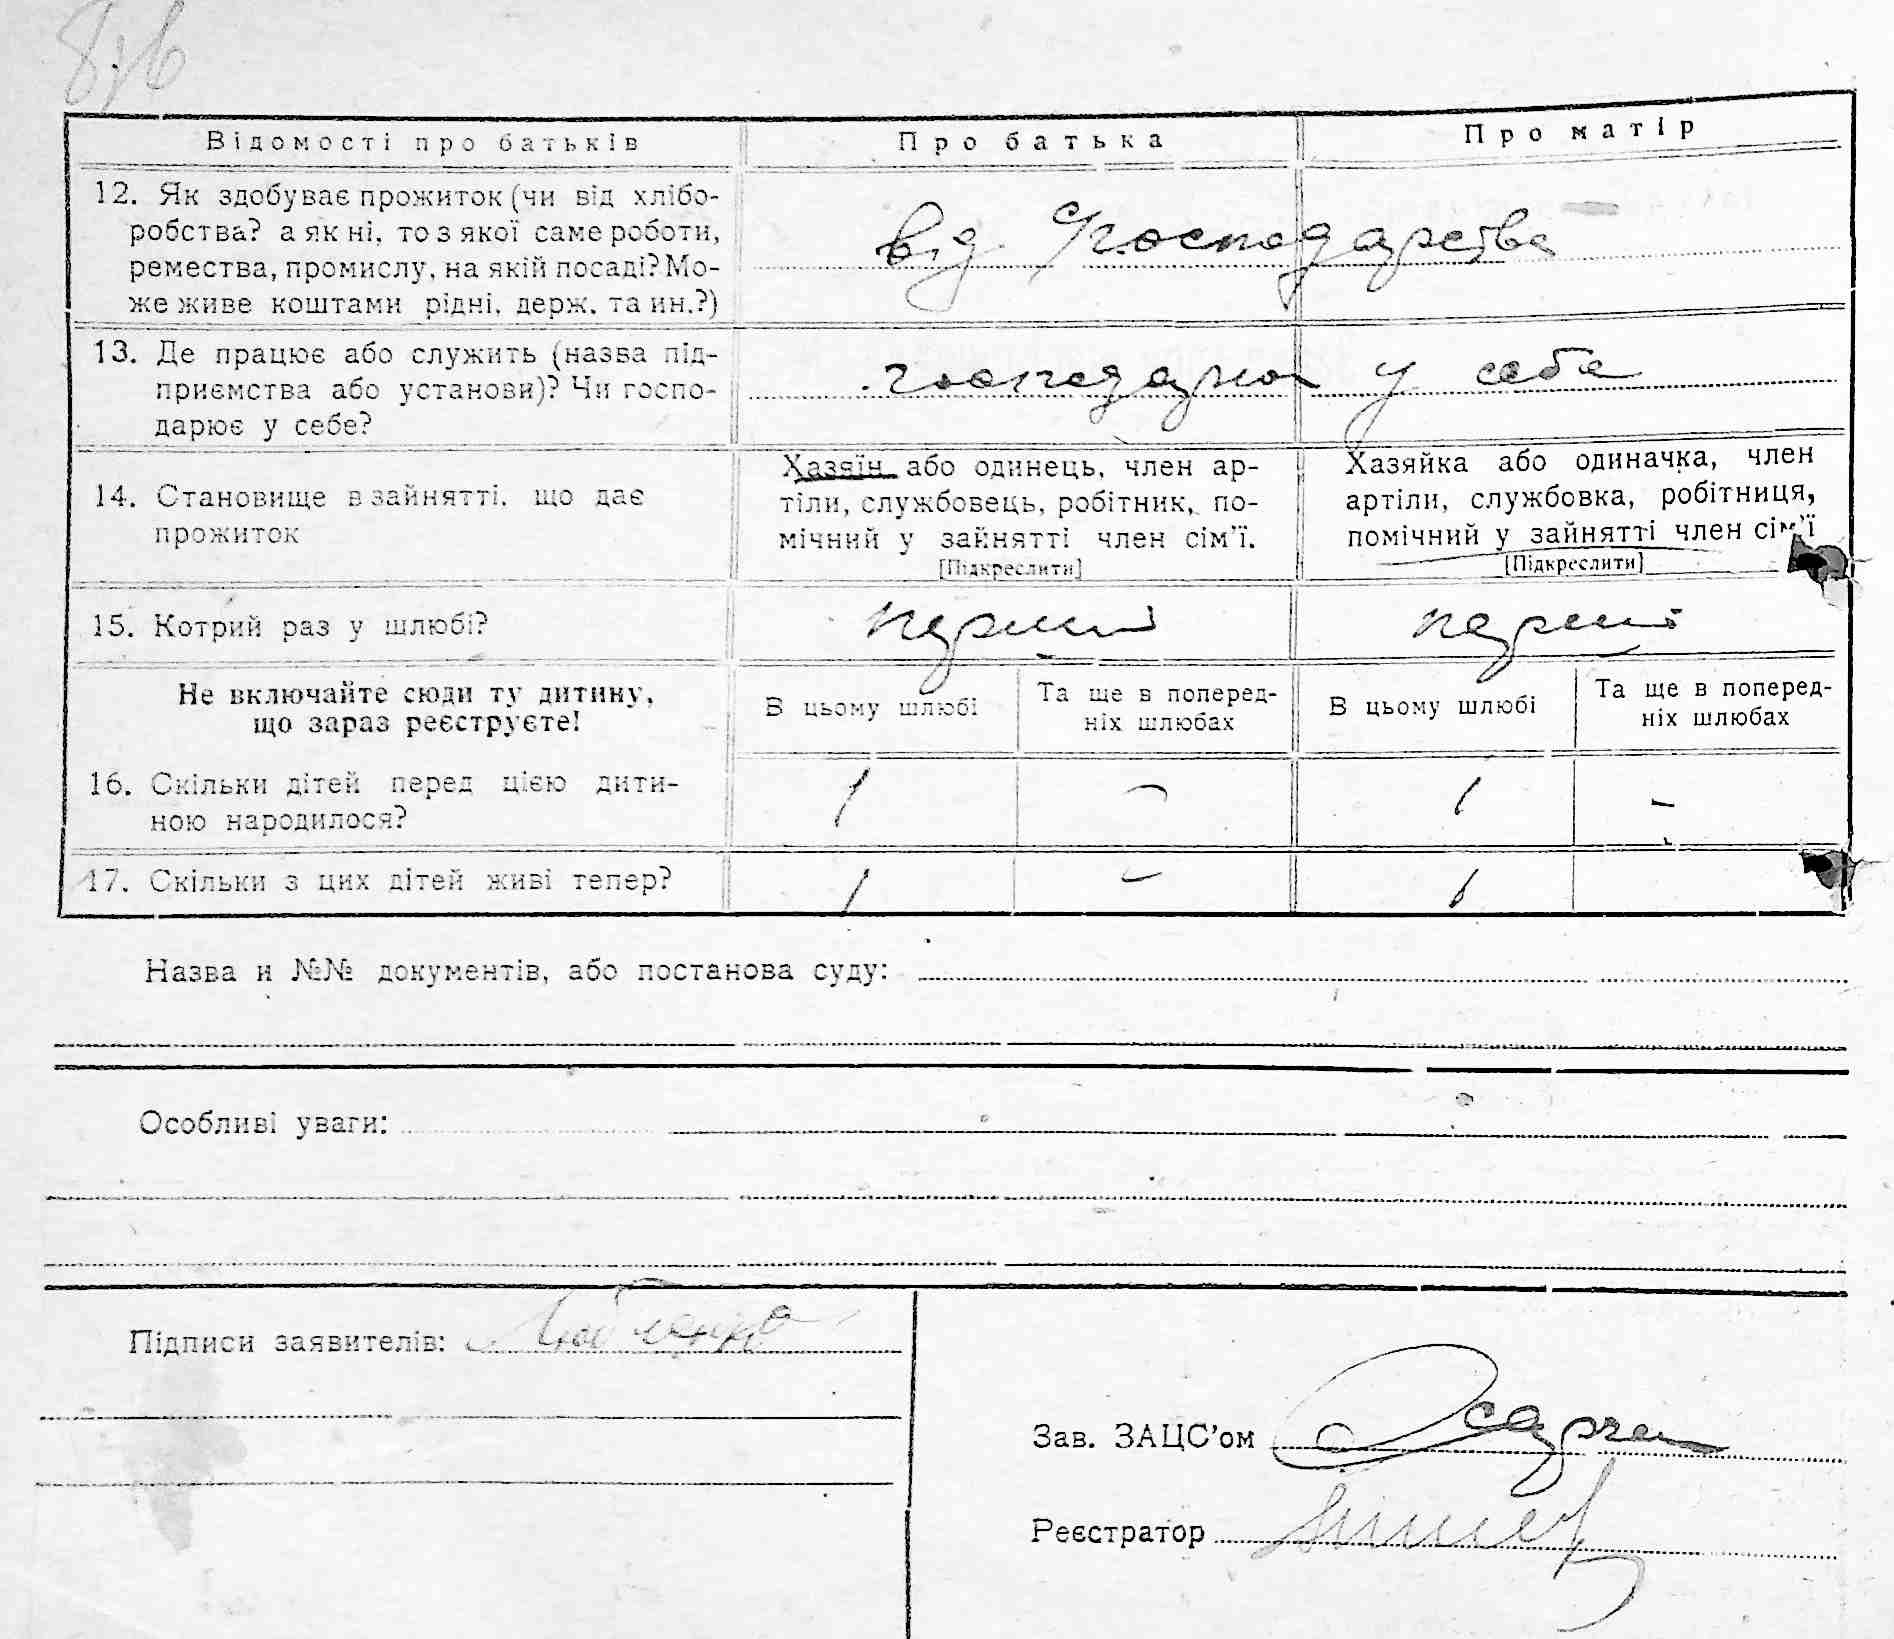 Відомості про батьків Про батька Про матір
12. Як здобуває прожиток (чи від хлібо-
робства? а як ні, то з якої саме роботи,
ремества, промислу, на якій посаді? Мо-
же живе коштами рідні, держ. та ин.?)
від господарства
13. Де працює або служить (назва під-
приємства або установи)? Чи госпо-
дарює у себе?
господарює у себе
14. Становище в зайнятті, що дає
прожиток
Хазяїн або одинець, член ар-
тіли, службовець, робітник, по-
мічний у зайнятті член сім'ї.
[Підкреслити]
Хазяйка або одиначка, член
артіли, службовка, робітниця,
помічний у зайнятті член сім'ї
[Підкреслити]
15. Котрий раз у шлюбі? перший перший
Не включайте сюди ту дитину,
що зараз реєструєте!
В цьому шлюбі
Та ще в поперед-
ніх шлюбах
В цьому шлюбі
Та ще в поперед-
ніх шлюбах
16. Скільки дітей перед цією дити-
ною народилося?
1 - 1 -
17. Скільки з цих дітей живі тепер? 1 - 1
Назва и №№ документів, або постанова суду:
Особливі уваги:
Підписи заявителів:
Зав. ЗАЦС'ом
Реєстратор